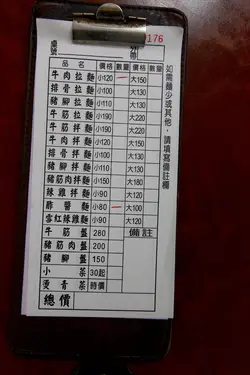 176
桌號 外帶
品名 價格 數量 價格 數量
牛肉拉麵 小120 大150
排骨拉麵 小100 大130
豬腳拉麵 小100 大130
牛筋拉麵 小190 大220
牛筋拌麵 小190 大220
牛肉拌麵 小120 大150
排骨拌麵 小100 大130
豬腳拌麵 小100 大130
豬筋肉拌麵 小150 大190
辣雞拌麵 小90 大120
酢醬麵 小80 大100
雪紅辣雞麵 小90 大120
牛筋盤 280 備註
豬筋肉盤 200
豬腳盤 150
小菜 30起
燙青菜 時價
總價
如需麵少或其他，請填寫備註欄